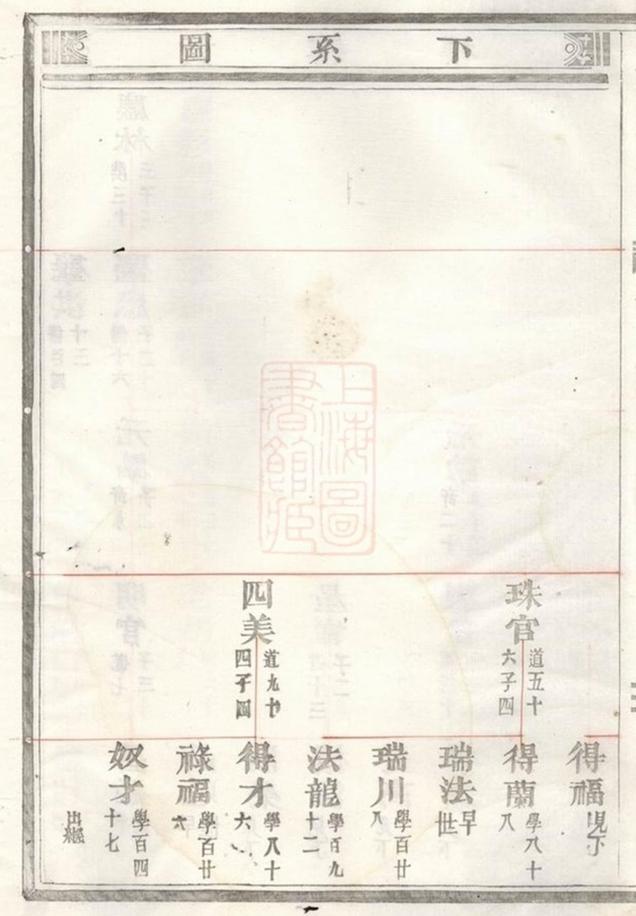 下系圖
珠官
道五十
六子四
四美
道九十
四子四
得福
見下
得蘭
學八十
八
瑞法
早世
瑞川
學百廿
八
法龍
學百九
十二
得才
學八十
六
祿福
學百廿
六
奴才
學百四
十七
出繼
上海圖書館藏